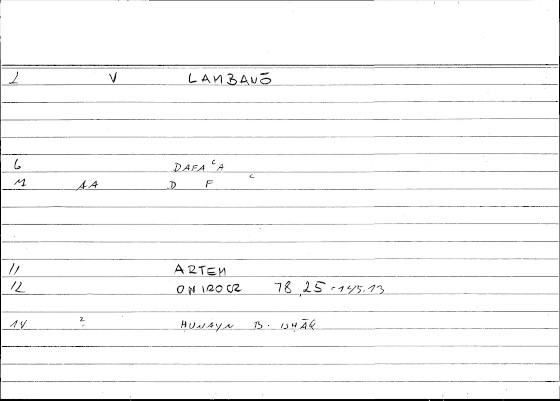 1 V LAMBANŌ
6 DAFAᶜA
M AA D F ᶜ
11 ARTEM
12 ONIROCR 78,25-145.13
14 2 HUNAYN B. ISHĀQ